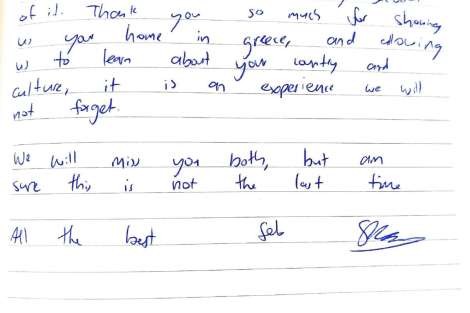 of it. Thank you so much for showing
us your home in greece, and allowing
us to learn about your country and
culture, it is an experience we will
not forget.
We will miss you both, but am
sure this is not the last time
All the best Seb